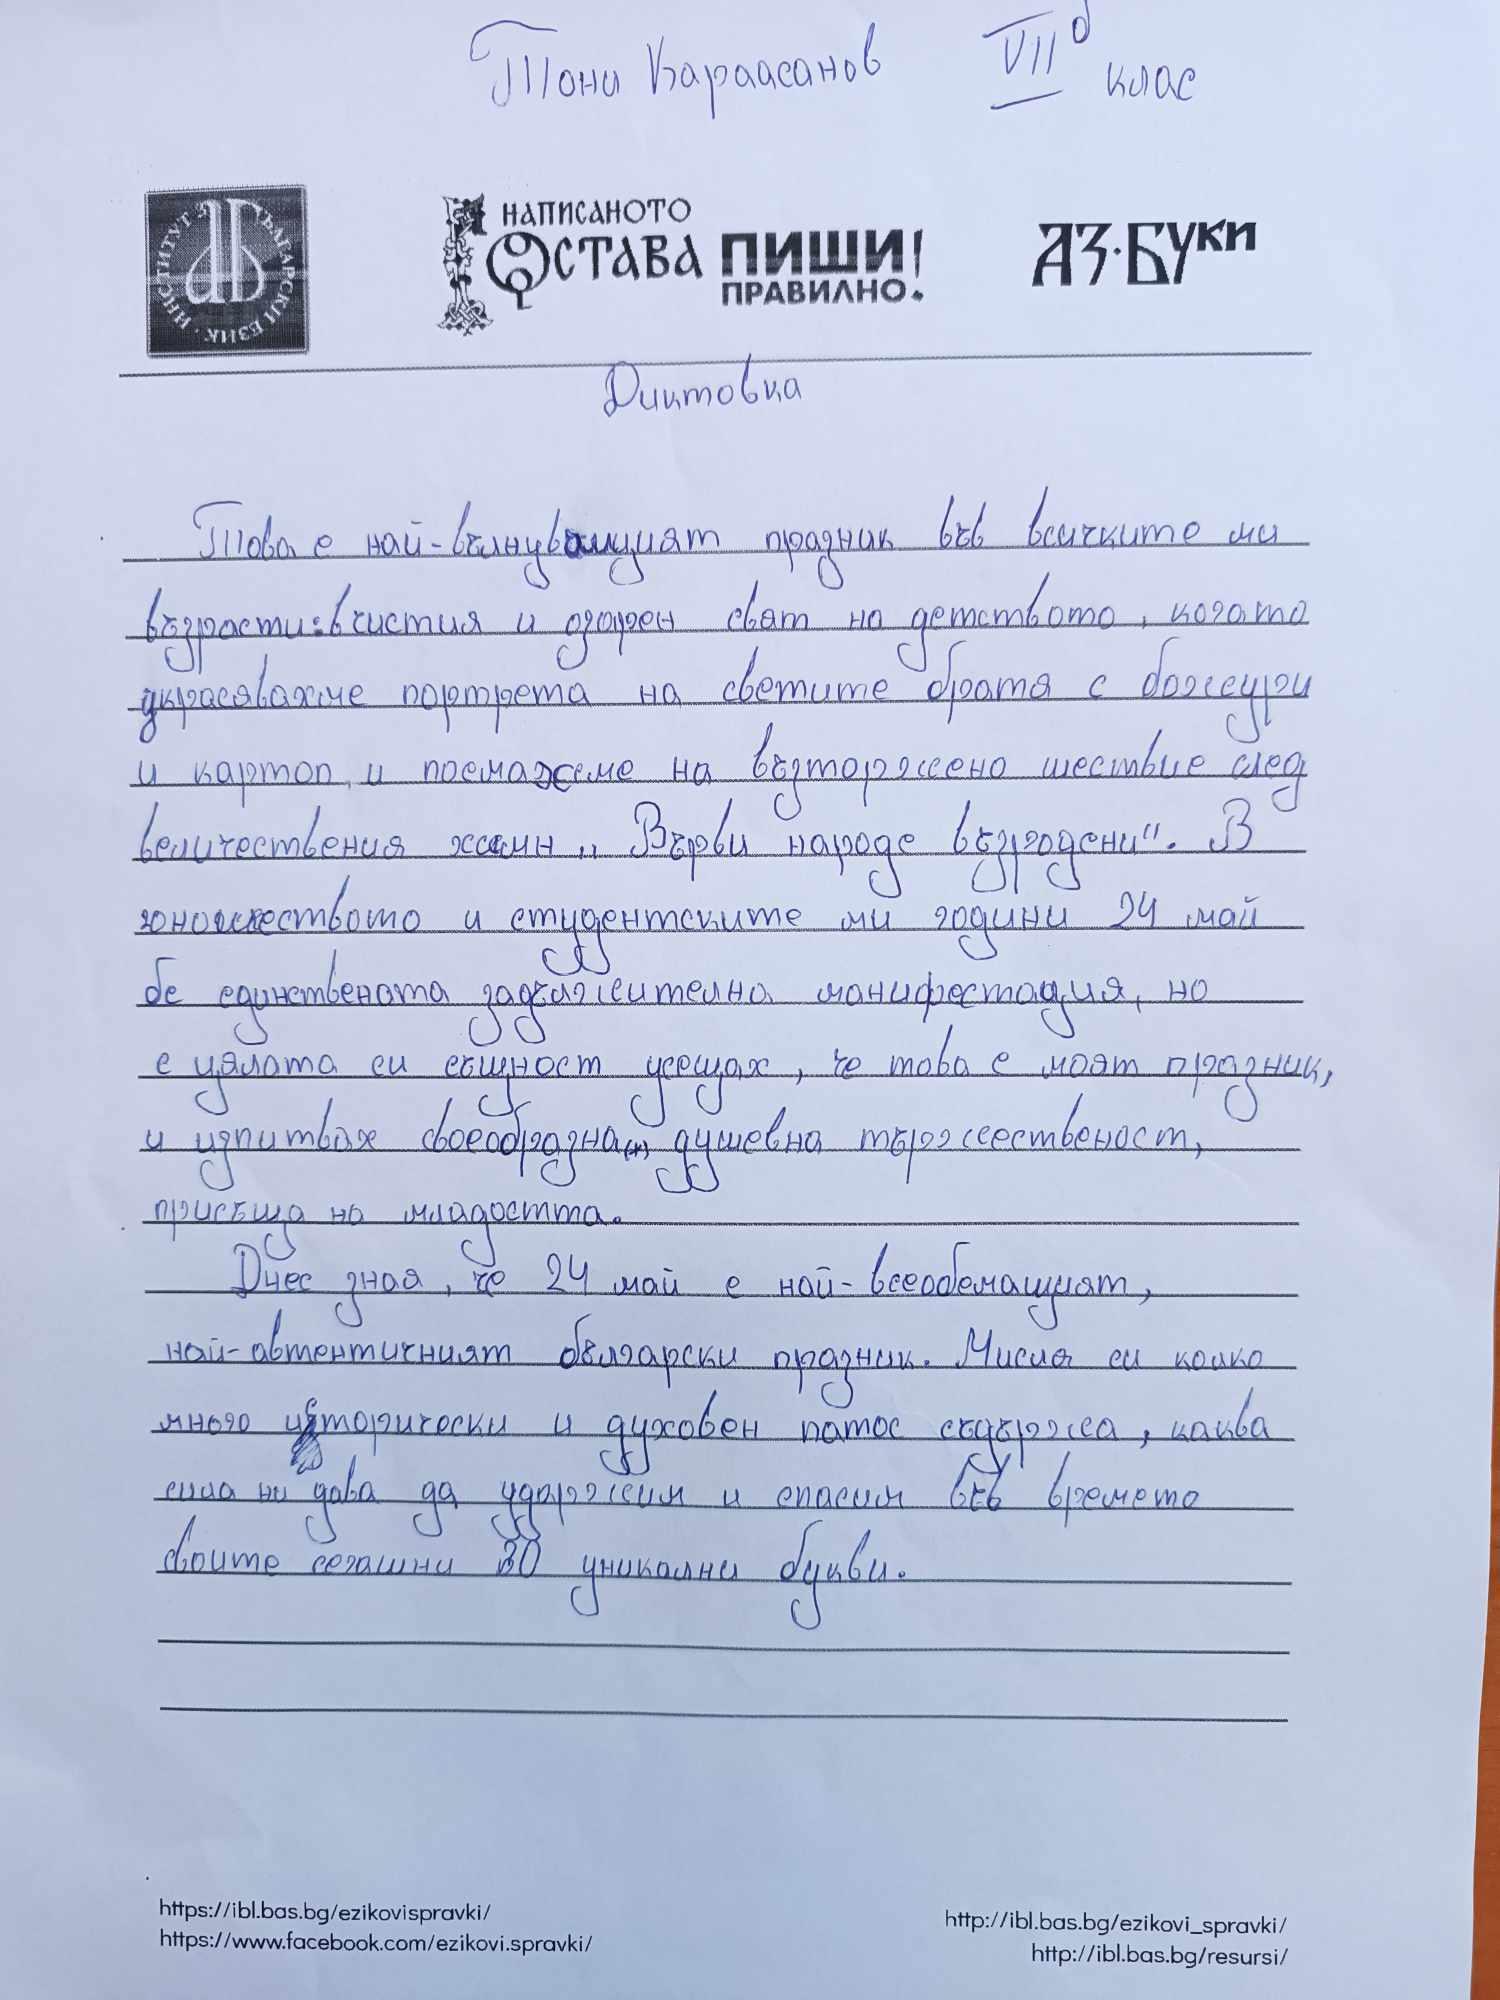 Тони Караасанов VII б клас
ИНСТИТУТ ЗА БЪЛГАРСКИ ЕЗИК
НАПИСАНОТО ОСТАВА ПИШИ ПРАВИЛНО! АЗ·БУКИ
Диктовка
Това е най-вълнуващият празник във всичките ми
възрасти: в чистия и озарен свят на детството, когато
украсявахме портрета на светите братя с божури
и картоп, и поемахме на възторжено шествие след
величествения химн „Върви народе възродени“. В
юношеството и студентските ми години 24 май
бе единствената задължителна манифестация, но
с цялата си същност усещах, че това е моят празник,
и изпитвах своеобразна(н) душевна тържественост,
присъща на младостта.
Днес зная, че 24 май е най-всеобемащият,
най-автентичният български празник. Мисля си колко
много исторически и духовен патос съдържа, каква
сила ни дава да удържим и спасим във времето
своите сегашни 30 уникални букви.
https://ibl.bas.bg/ezikovispravki/
https://www.facebook.com/ezikovi.spravki/
http://ibl.bas.bg/ezikovi_spravki/
http://ibl.bas.bg/resursi/